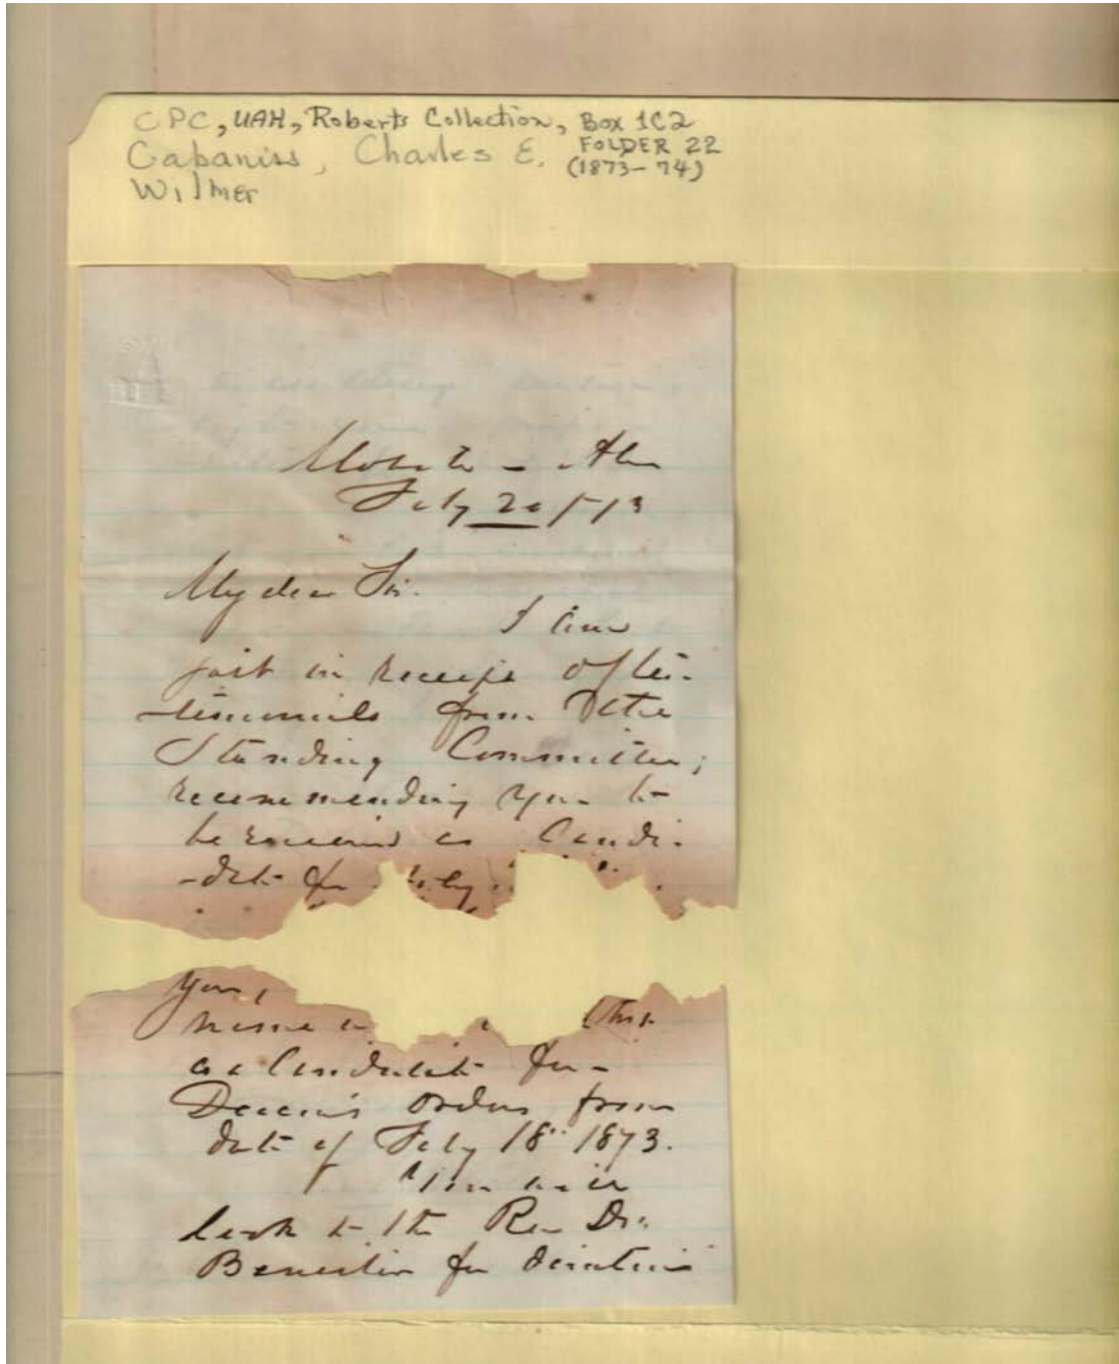 CPC, UAH, Roberts Collection, Box 1C2
FOLDER 22
Cabaniss, Charles E. (1873-74)
Wilmer
Mobile - Ala
July 20 / 73
My dear Sir.
I have
just in receipt of tes-
timonials from the
Standing Committee,
recommending you to
be received as Candi-
-date for Holy
your
name
as a Candidate for
Deacon's orders from
date of July 18" 1873.
You will
look to the Rev Dr.
Banister for directions